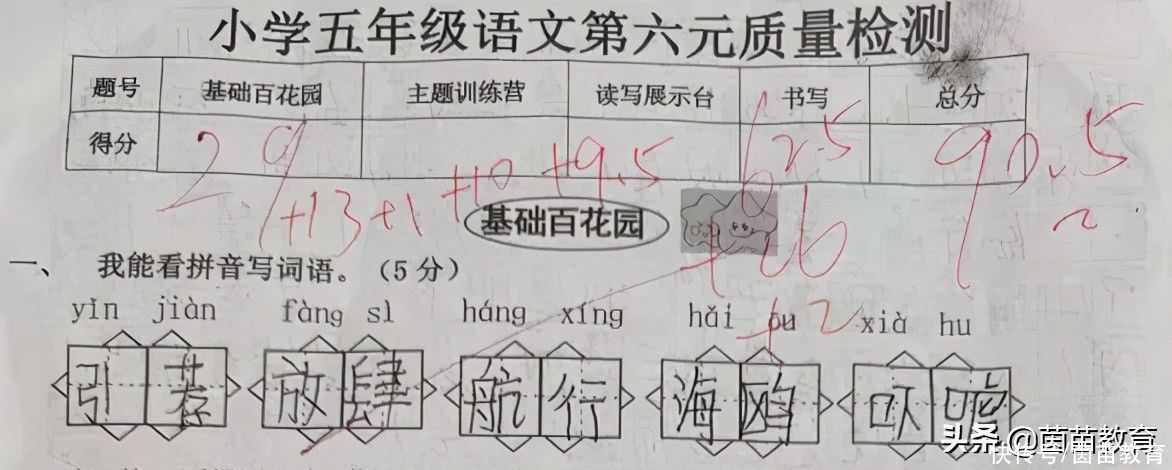 小学五年级语文第六元质量检测
题号 基础百花园 主题训练营 读写展示台 书写 总分
得分 29 +13+1 +10 +9.5 2.5 90.5
+26
+2
基础百花园
一、 我能看拼音写词语。(5分)
yǐn jiàn fàng sì háng xíng hǎi ōu xià hu
引荐 放肆 航行 海鸥 吓唬
头条 @茵茵教育
快传号/茵苗教育